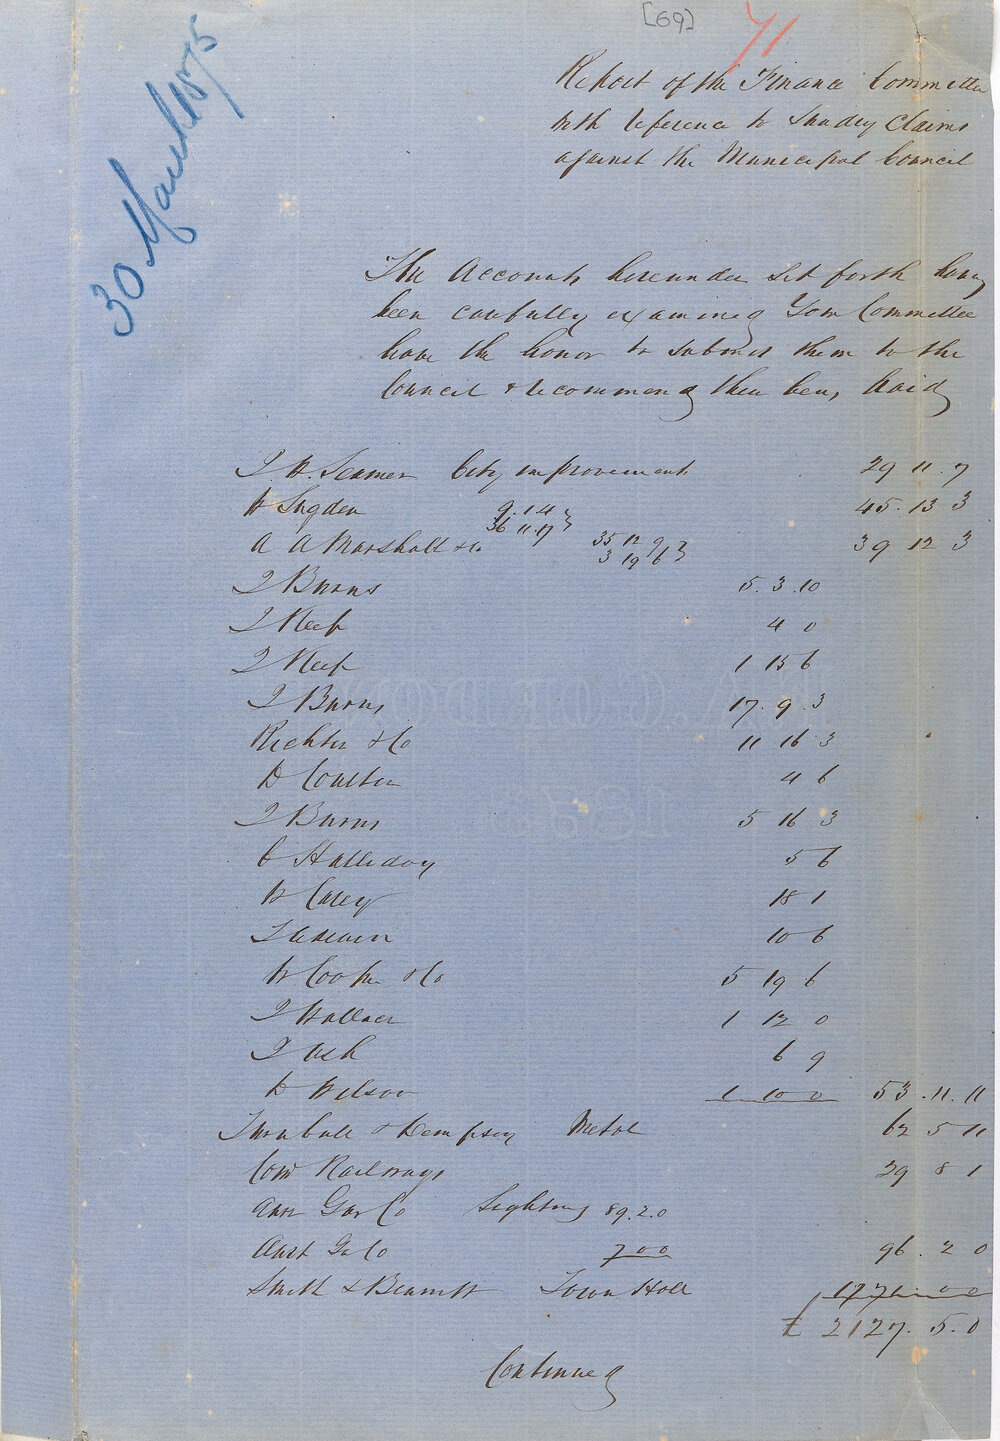 [69]
71
30 March 1875
Report of the Finance Committee
with reference to Sundry Claims
against the Municipal Council
The Accounts hereunder set forth having
been carefully examined Your Committee
have the honor to submit them to the
Council & recommend their being paid
City improvements 29 11 . 7
W Sugden 9 . 1 . 4 } 45 . 13 3
36 11 . 17 }
A A Marshall & Co 35 12 9 } 39 12 3
3 19 6 }
J Burns 5 . 3 . 10
J Keep 4 0
J Keep 1 15 6
J Burns 17 . 9 . 3
Richter & Co 11 16 3
D Coulter 4 6
J Burns 5 16 3
C Halliday 5 6
W Carey 18 1
10 6
W Cooper & Co 5 19 6
J Wallace 1 12 0
J Ash 6 9
D Wilson 1 10 0 53 . 11 . 11
Turnbull & Dempsey Metal 62 5 11
Com Railways 29 8 1
Aust Gas Co Lighting 89 . 2 . 0
Aust Gas Co 7 0 0 96 . 2 0
Smith & Bennett Town Hall 1771 . 0 0
£ 2127 . 5 . 0
Continued